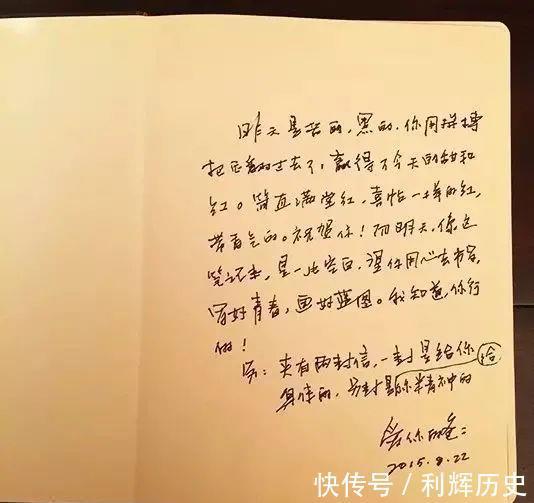 昨天是苦的,黑的,你用拼搏
把它翻过去了,赢得了今天的甜和
红。简直满堂红,喜帖一样的红,
带香气的。祝贺你!而明天,像这
笔记本,是一片空白,望你用心去书写,
写好青春,画好蓝图。我知道,你行
的!
另:夹有两封信,一封是给你
身体的,另封是给你精神的
爱你的爸:
2015.8.22
快传号/利辉历史